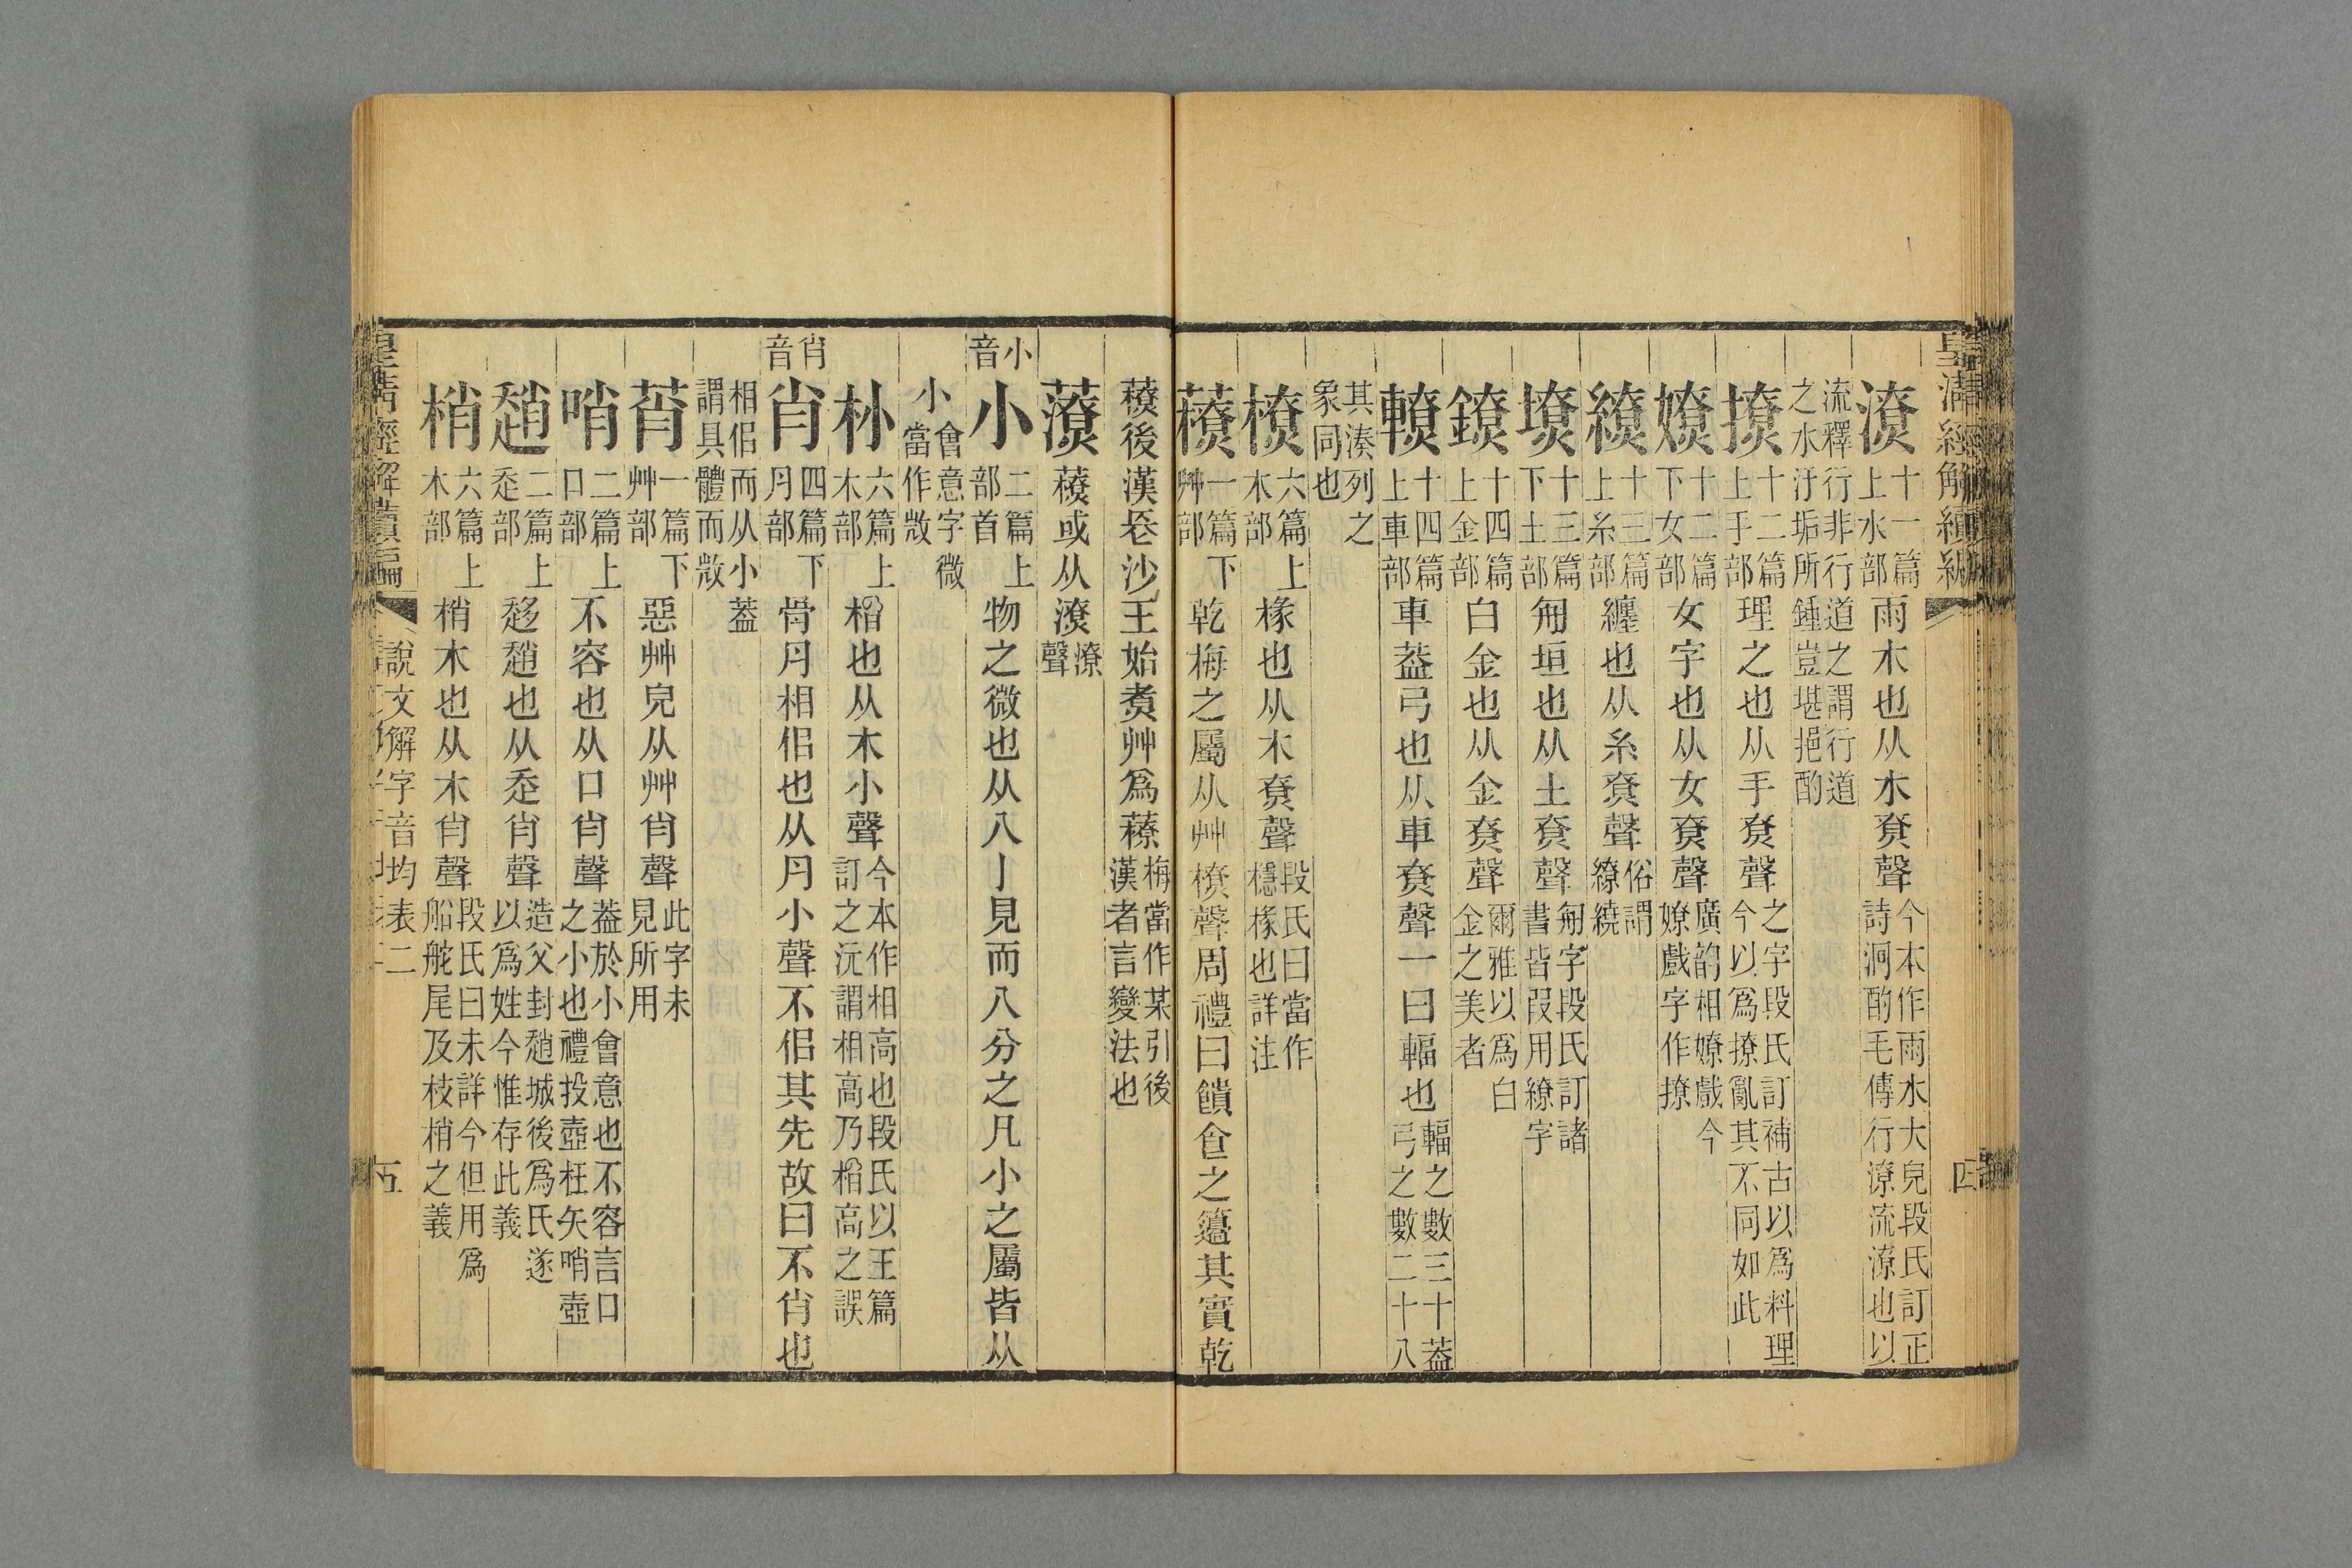 皇清經解續編
四
潦 十一篇上水部 雨水也从水尞聲 今本作雨水大皃段氏訂正詩泂酌毛傳行潦流潦也以
流釋行非行道之謂行道之水汙垢所鍾豈堪挹酌
撩 十二篇上手部 理之也从手尞聲 之字段氏訂補古以爲料理今以爲撩亂其不同如此
嫽 十二篇下女部 女字也从女尞聲 廣韵相嫽戲今嫽戲字作撩
繚 十三篇上糸部 纏也从糸尞聲 俗謂繚繞
墝 十三篇下土部 周垣也从土尞聲
鐐 十四篇上金部 白金也从金尞聲 爾雅以爲白金之美者
轑 十四篇上車部 車葢弓也从車尞聲一曰輻也 輻之數三十葢弓之數二十八
其湊列之象同也
橑 六篇上木部 椽也从木尞聲 段氏曰當作檼椽也詳注
藔 一篇下艸部 乾梅之屬从艸橑聲周禮曰饋食之籩其實乾
藔後漢長沙王始煑艸爲藔 梅當作某引後漢者言變法也
䕩 藔或从潦 潦聲
小音 小 二篇上部首 物之微也从八丨見而八分之凡小之屬皆从
小 會意字微當作㪕
朴 六篇上木部 相也从木小聲 今本作相高也段氏以王篇訂之沅謂相高乃榒高之誤
肖音 肖 四篇下肉部 骨肉相侣也从肉小聲不侣其先故曰不肖也
相侣而从小葢謂具體而㪕
莦 一篇下艸部 惡艸皃从艸肖聲 此字未見所用
哨 二篇上口部 不容也从口肖聲 葢於小會意也不容言口之小也禮投壺枉矢哨壺
趙 二篇上走部 趍趙也从走肖聲 造父封趙城後爲氏遂以爲姓今惟存此義
梢 六篇上木部 梢木也从木肖聲 段氏曰未詳今但用爲船舵尾及枝梢之義
皇清經解續編
說文解字音均表二
五